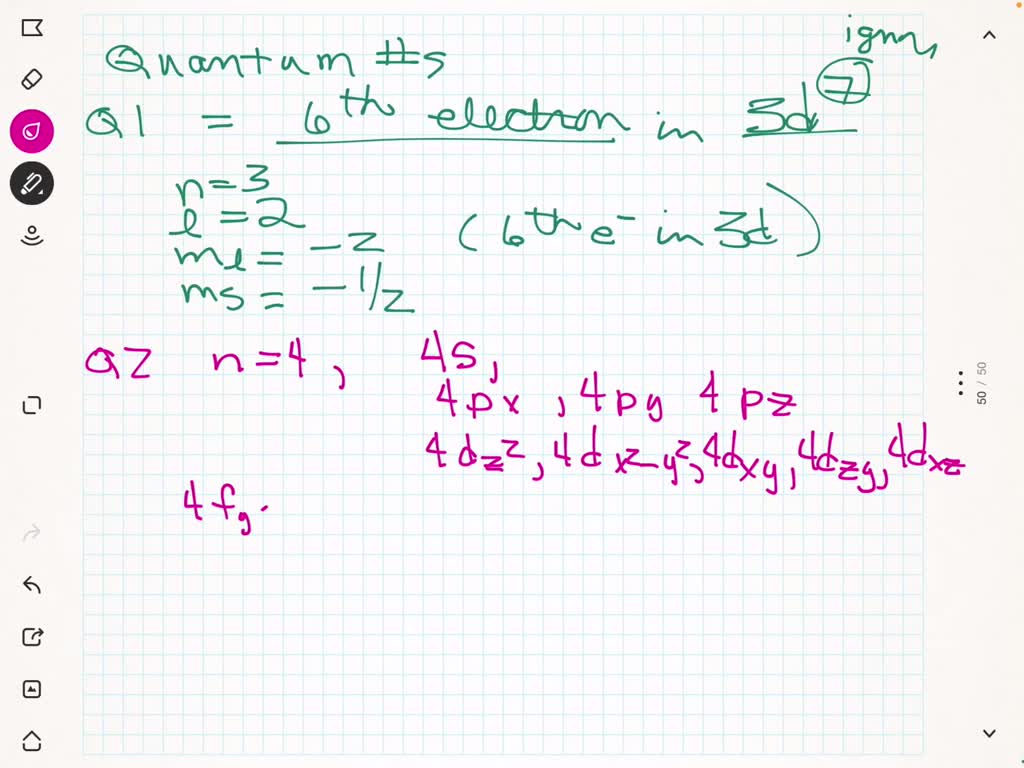 Quantum #s
Q1 = 6th electron in 3d7
n=3
l=2
ml= -2 (6th e- in 3d)
ms= -1/2
Q2 n=4, 4s,
4px, 4py 4pz
4dz2, 4dx2-y2, 4dxy, 4dzy, 4dxz
4f
50 / 50